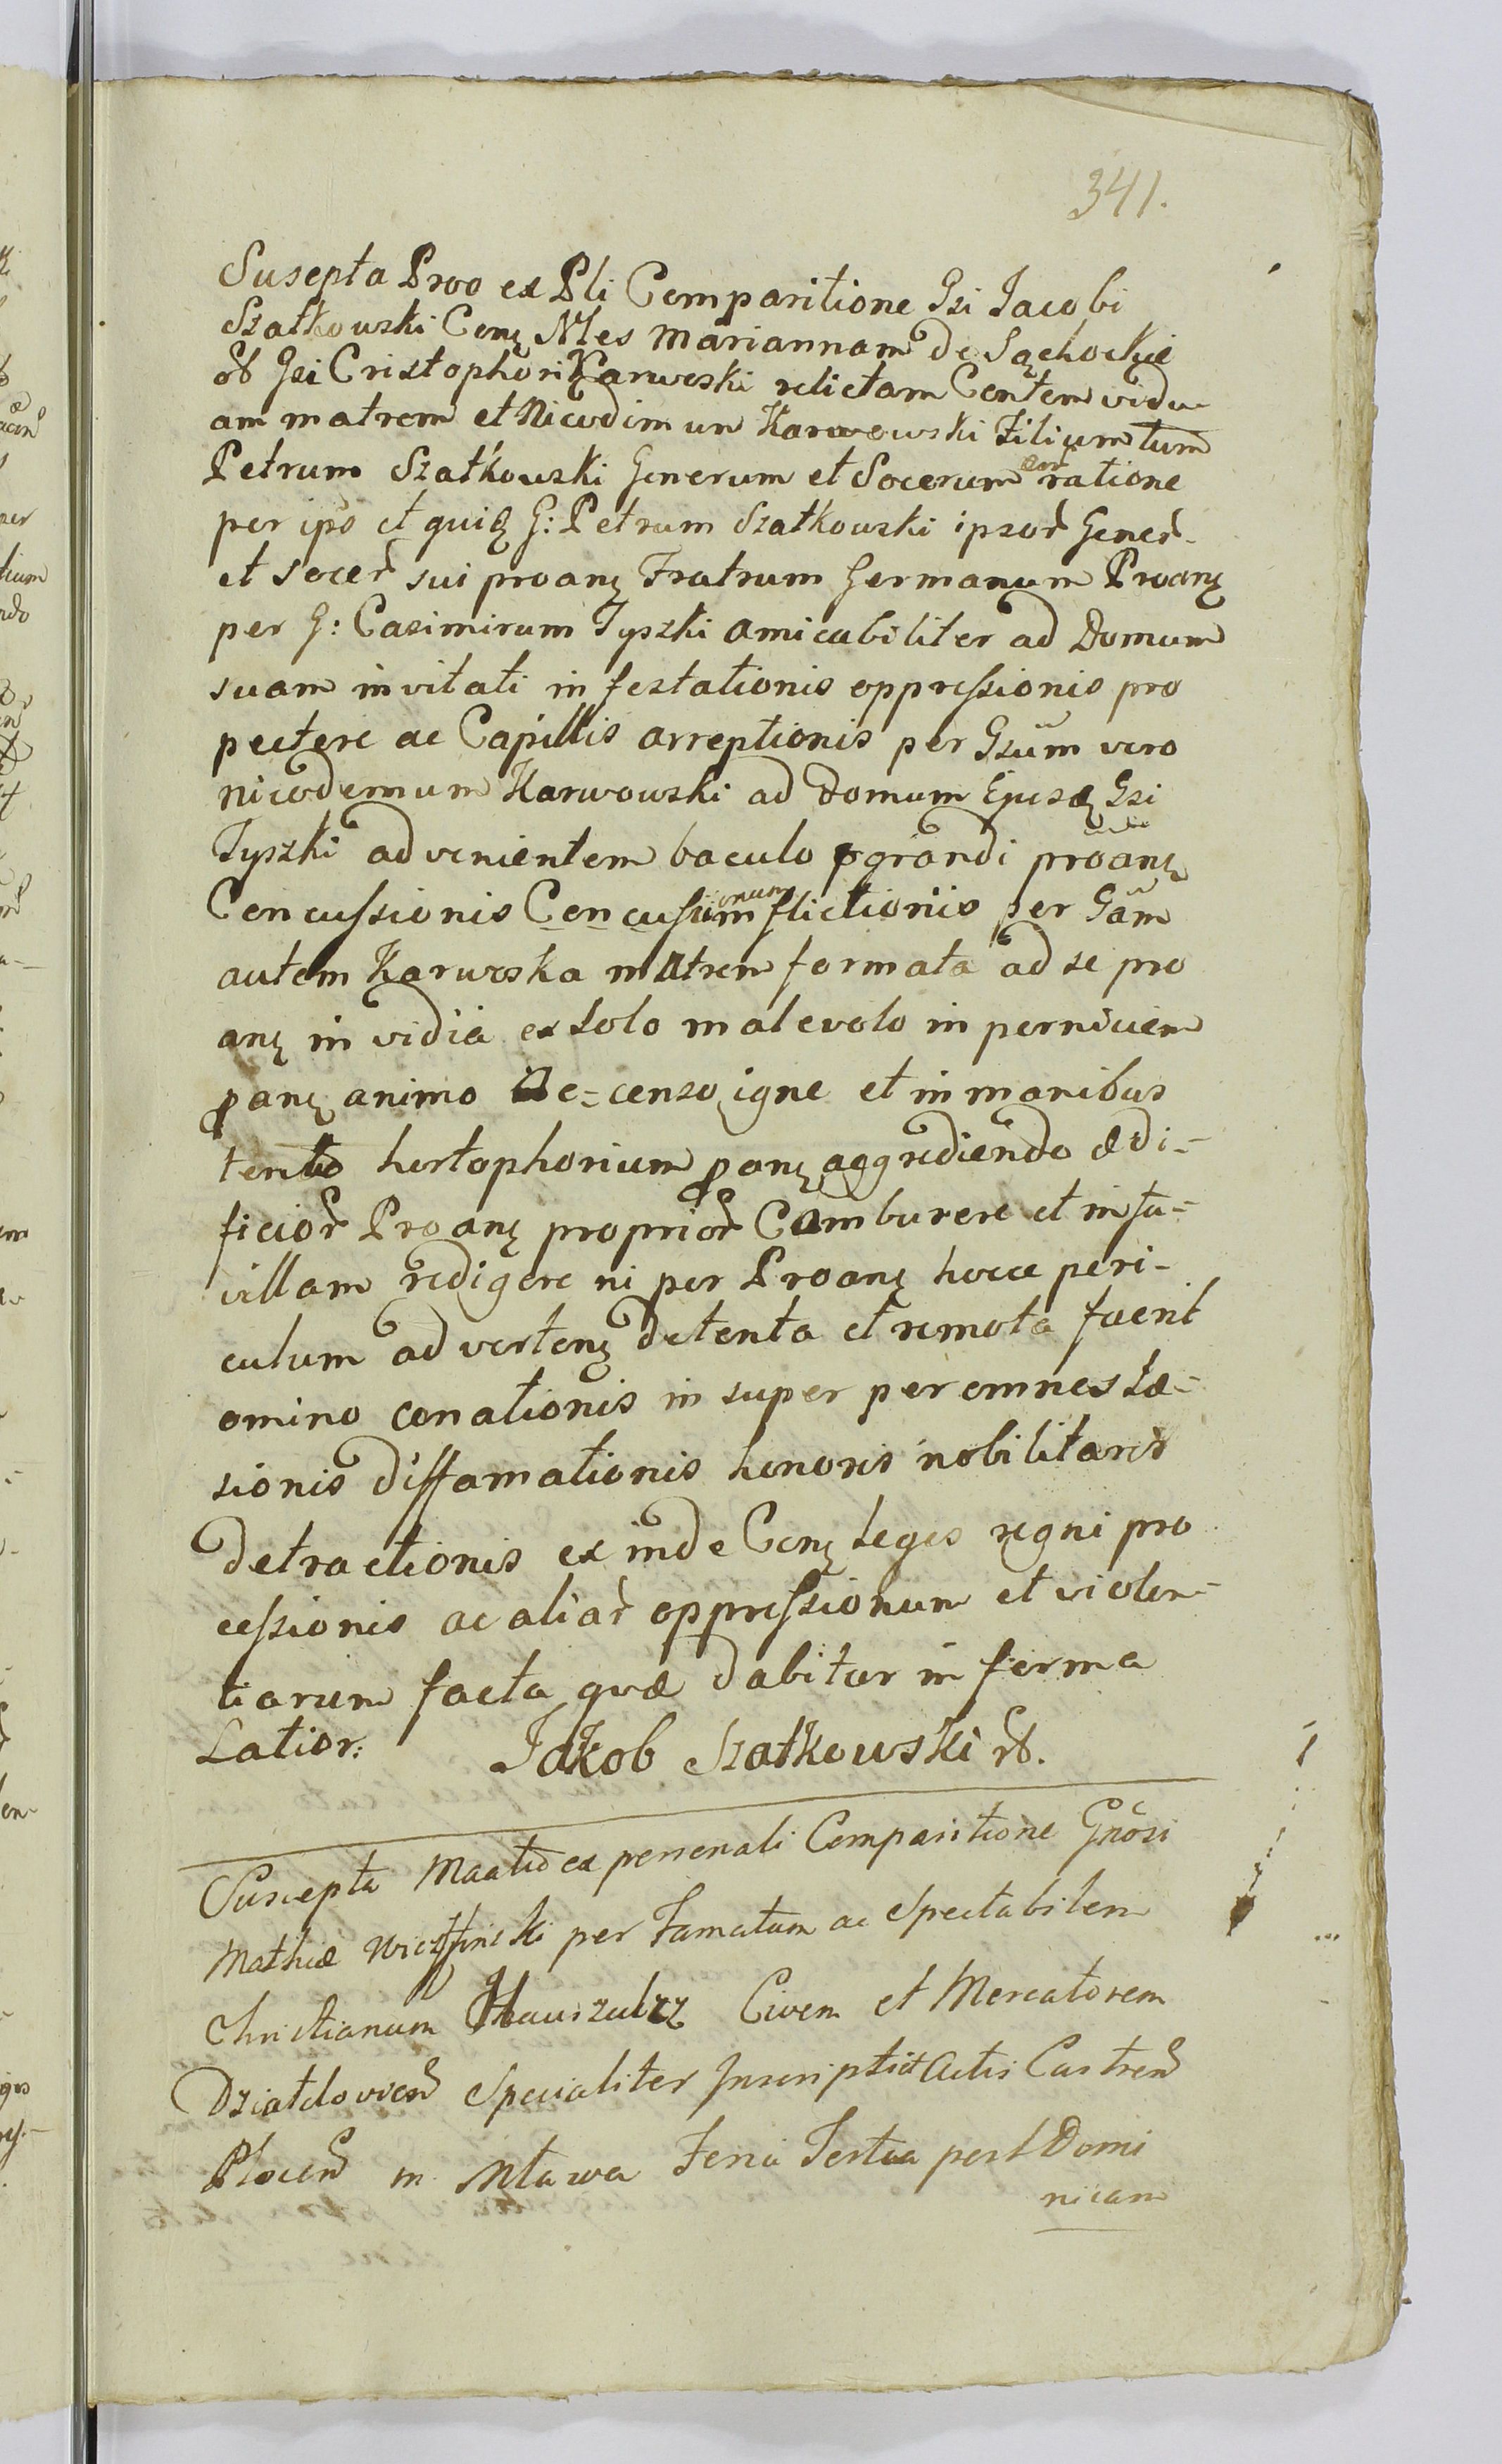 341.
Susepta Proo ex Pli Comparitione Gsi Jacobi
Szatkowski Cong Nles Mariannam de Sąchockie
olb Gsi Cristophori Karwoski relictam Contem vidu-
am matrem et Nicodimum Karwowski Filium tum
Petrum Szatkowski Generum et Socerum eor ratione
per ipso et quidg G: Petrum Szatkowski ipsor Gener-
et socer sui proang Fratrum Germanum Proang
per G: Casimirum Tyszki amicabiliter ad Domum
suam invitati infestationis oppressionis pro
pectere ac Capillis arreptionis per Gsum vero
nicodemum Karwowski ad domum Ejusdg Gsi
Tyszki advenientem baculo pgrandi proang
Concussionis Concussionum flictioniis per Gam
autem Karwoska matrem formata ad se pro
ang invidia ex solo malevolo in perniciem
pang animo Ac=censo igne et in manibus
tento hortophorium pang aggrediendo ædi-
ficior Proang proprior Comburere et infa-
villam redigere ni per Proang hocce peri-
culum adverteng detenta et remota fuerit
omino conationis in super per omnes læ-
sionis diffamationis honoris nobilitaris
detractionis ex inde Cong leges regni pro
cessionis ac aliar oppressionum et violen-
tiarum facta quæ dabitur in forma
Latior: Jakob Szatkowski olb.
Suscepta Maatio ex personali Comparitione Gnosi
Mathiæ per Famatum ac Spectabilem
Christianum Hauszultz Civem et Mercatorem
Dziatdovien Specialiter Inscriptio Actis Castren
Plocen in Mlawa Feria Tertia post Domi
nicam